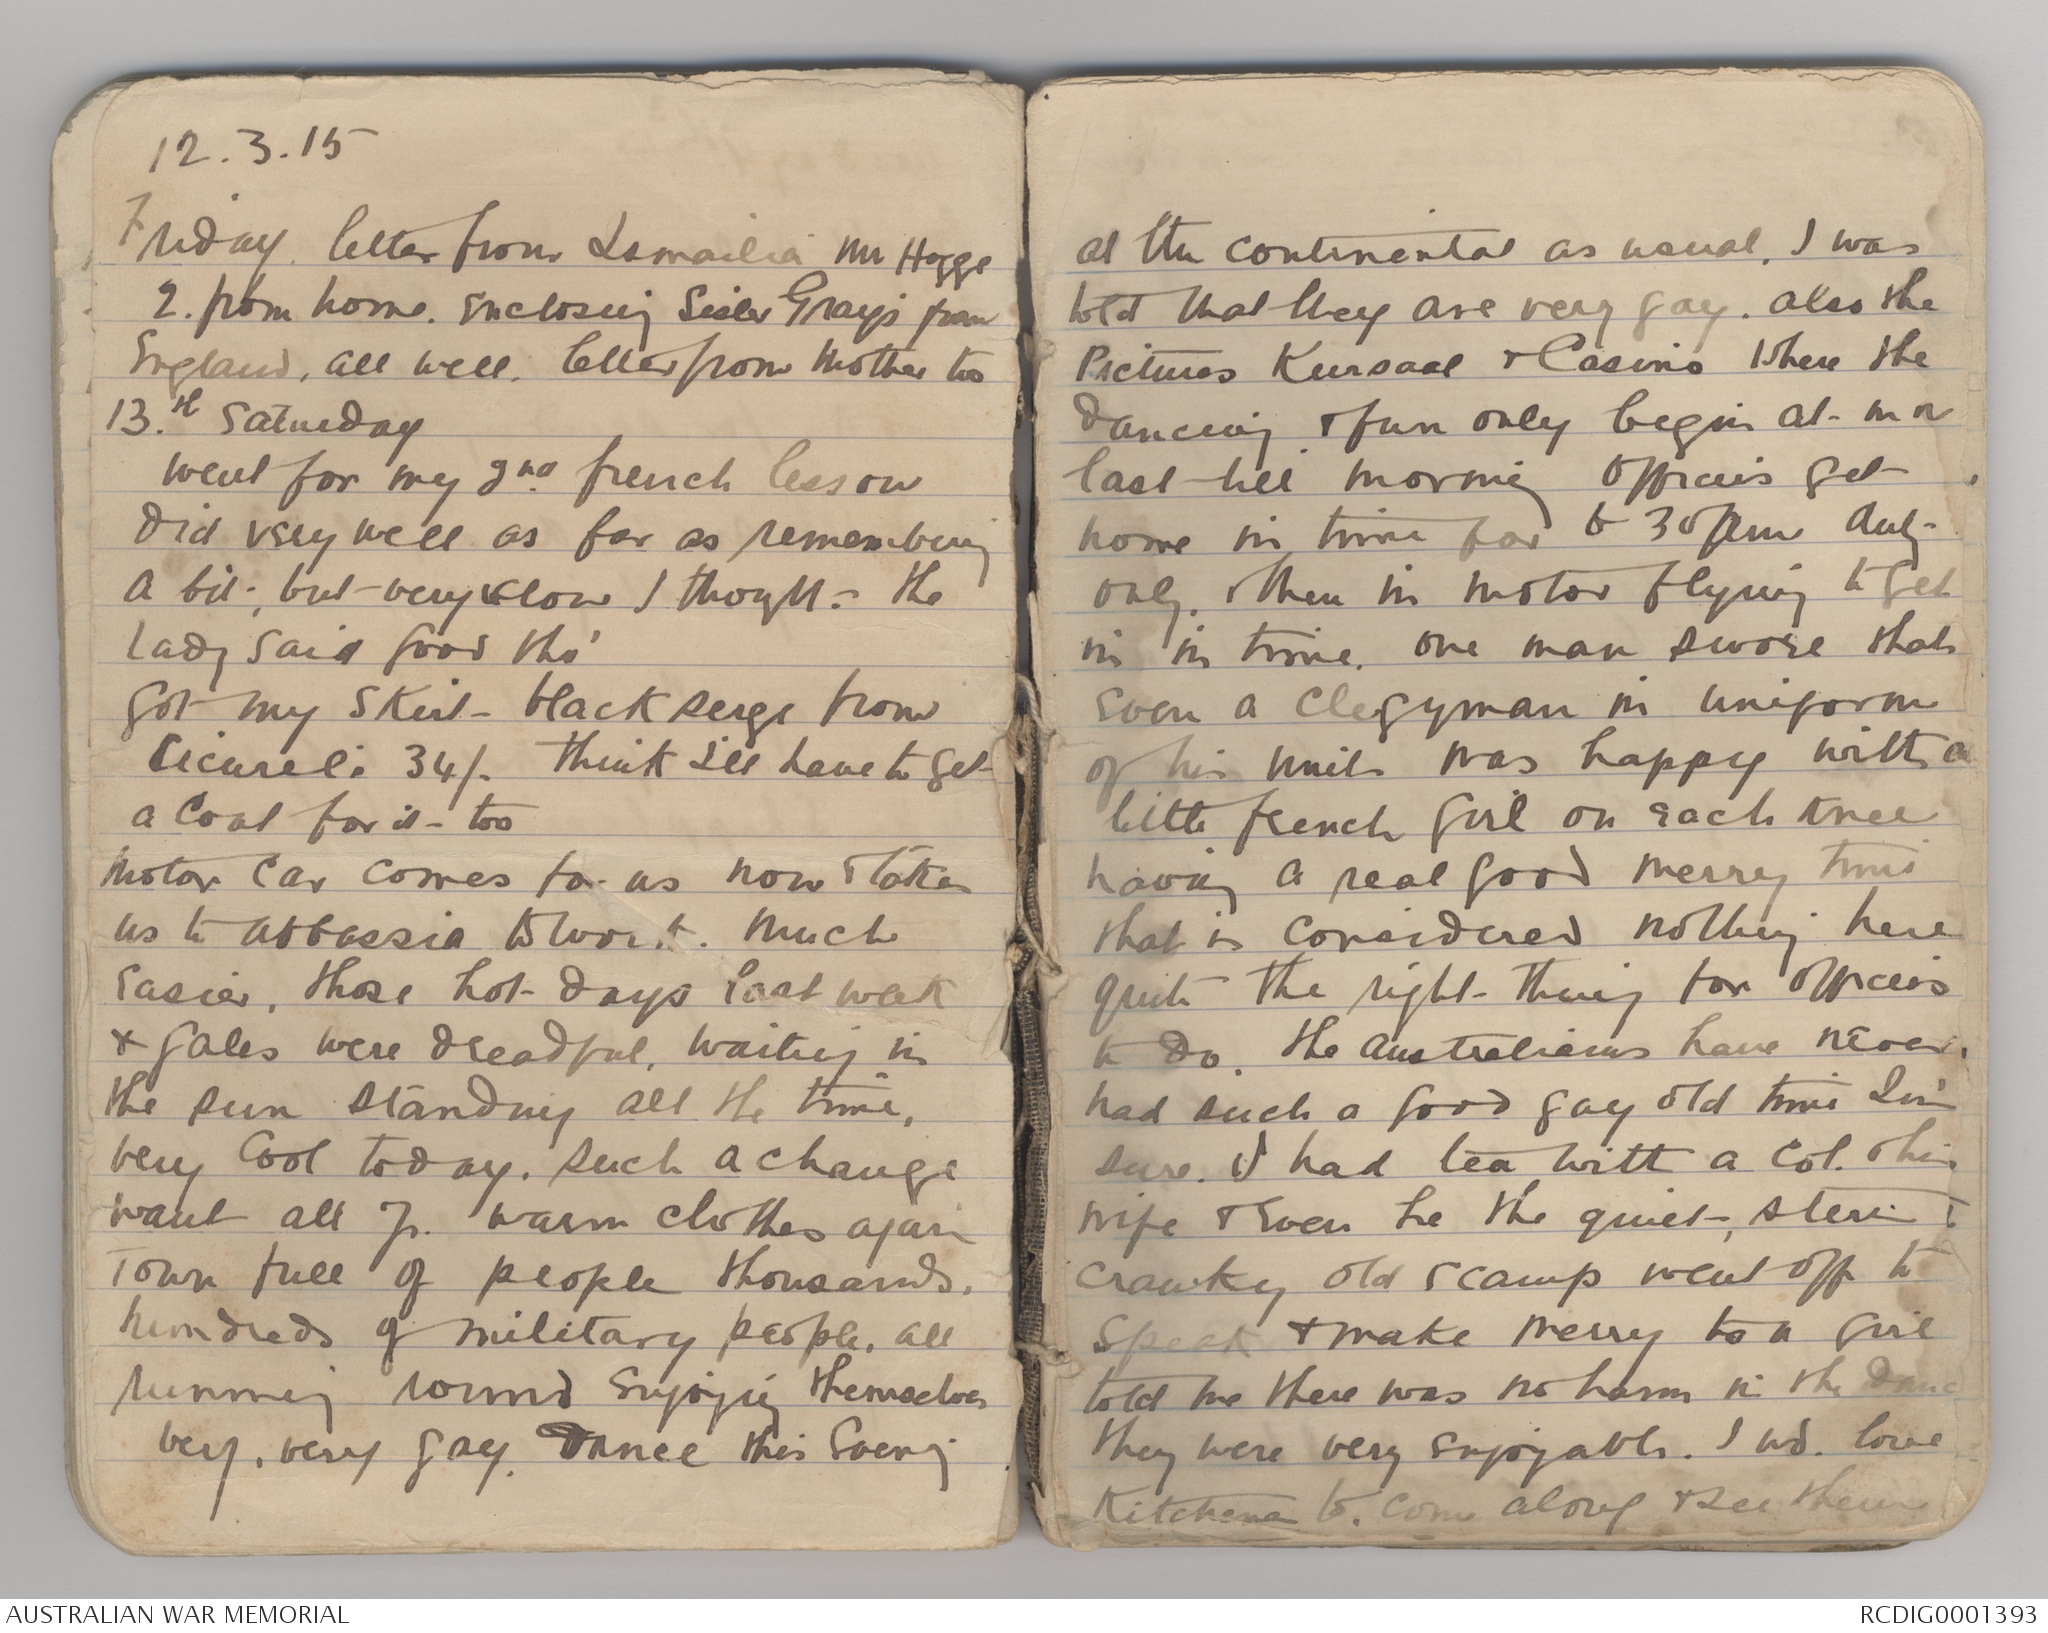 12.3.15
Friday. letter from Ismailia Mr Hogge
2. from home. enclosing Sister Gray's from
England. all well. letter from Mother too
13.th Saturday
went for my 2nd. french lesson
Did very well as far as remembering
a bit, but very slow I thought - the
Lady said good tho'
got my skirt - black serge from
Cicureli 34/- think I'll have to get
a coat for it - too
Motor Car comes for us now & takes
us to Abbassia to work. Much
easier, those hot days last week
& gales were dreadful, waiting in
the sun standing all the time,
very cool today. such a change
want all my warm clothes again
Town full of people thousands.
hundreds of military people, all
running round enjoying themselves
very, very gay. Dance this evening
at the continental as usual. I was
told that they are very gay. also the
Pictures Kursaal & Casino where the
dancing & fun only begin at
last till morning Officers get
home in time for 6 30 duty
only. & then in motor flying to get
in in time. one man swore that
even a clegyman in uniform
of his unit was happy with a
little french girl on each knee
having a real good merry time
that is considered nothing here
quite the right thing for officers
to do. the Australians have never
had such a good gay old time I'm
sure. I had tea with a Col. & his
wife & even he the quiet, stern &
crawky old scamp went off to
speak & make merry to a girl
told me there was no harm in the dance
they were very enjoyable. I wd. love
Kitchener to. come along & see them
AUSTRALIAN WAR MEMORIAL
RCDIG0001393